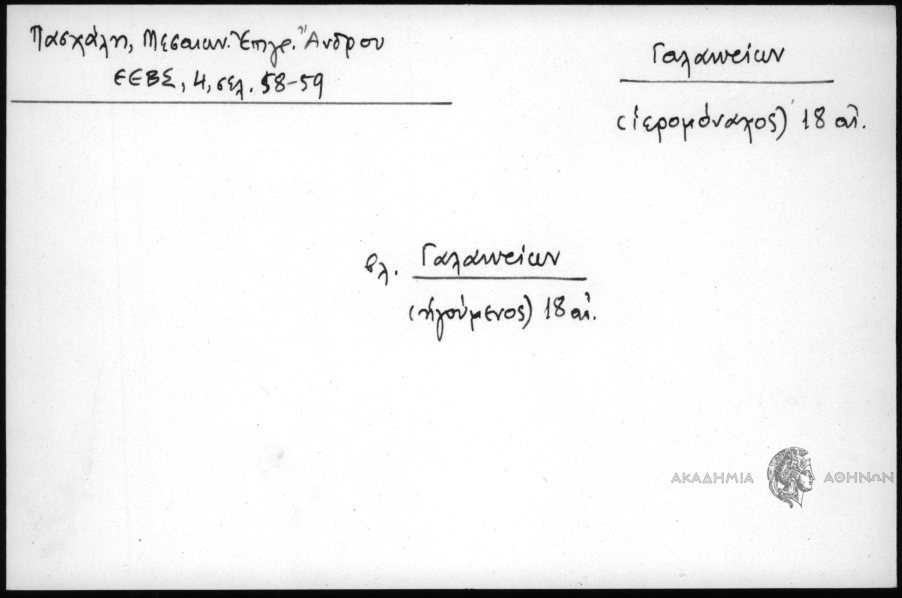 Πασχάλη, Μεσαιων. Ἐπιγρ. Ἄνδρου
ΕΕΒΣ, 4, σελ. 58-59
Γαλακτείων
(ἱερομόναχος) 18 αἰ.
βλ. Γαλακτείων
(ἡγούμενος) 18 αἰ.
ΑΚΑΔΗΜΙΑ ΑΘΗΝΩΝ